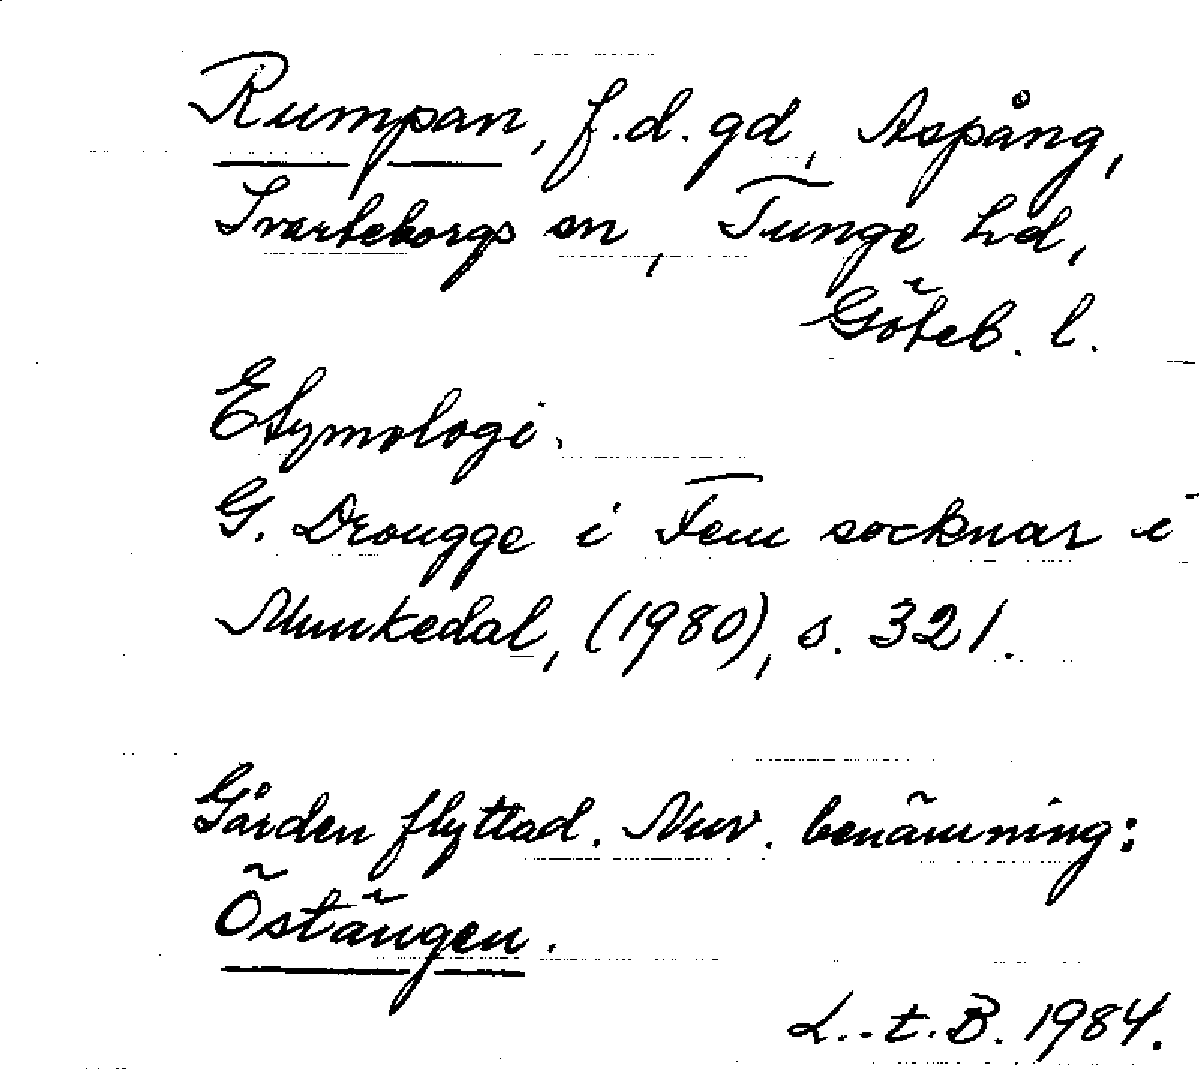 Rumpan, f.d. gd, Aspång,
Svarteborgs sn, Tunge hd,
Göteb. l.
Etymologi.
G. Drougge i Fem socknar i
Munkedal, (1980), s. 321.
Gården flyttad. Nuv. benämning:
Östängen.
L..t.B. 1984.